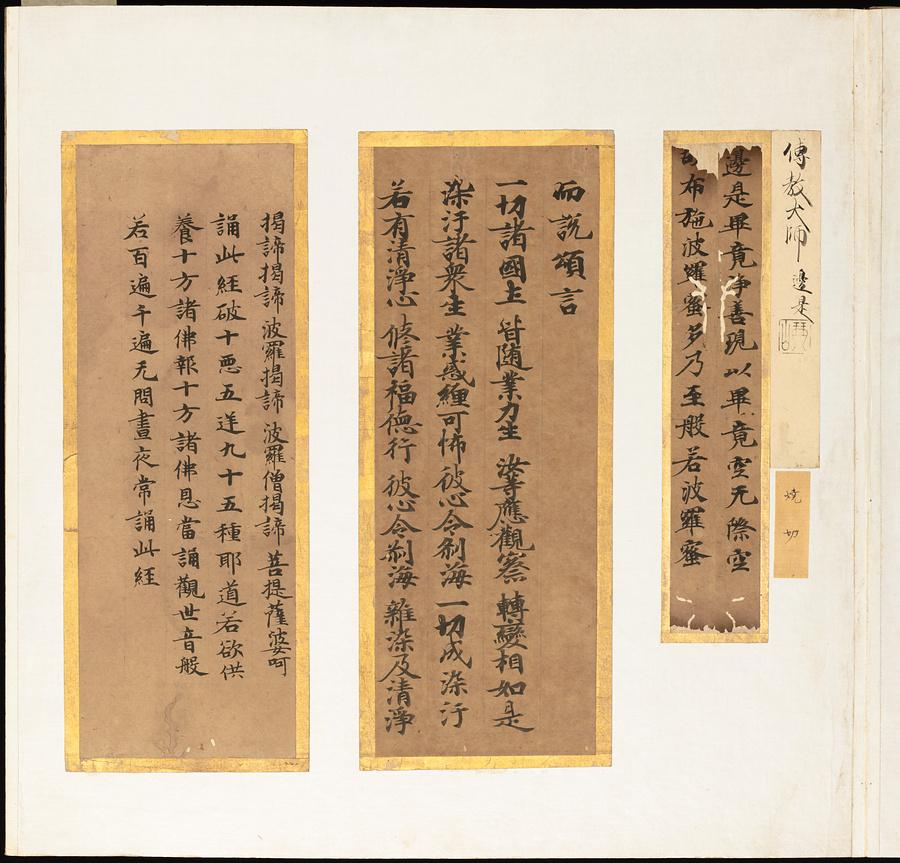 傅教大師 邊是
焼切
邊是畢竟淨善現以畢竟空无際空
布施波羅蜜多乃至般若波羅蜜
而説頌言
一切諸國土 皆随業力生 汝等應觀察 轉變相如是
染汙諸衆生 業惑纏可怖 彼心令刹海 一切成染汙
若有清淨心 修諸福德行 彼心令刹海 雜染及清淨
揭諦揭諦 波羅揭諦 波羅僧揭諦 菩提薩婆呵
誦此經破十悪五逆九十五種耶道若欲供
養十方諸佛報十方諸佛恩當誦觀世音般
若百遍千遍无問晝夜常誦此經